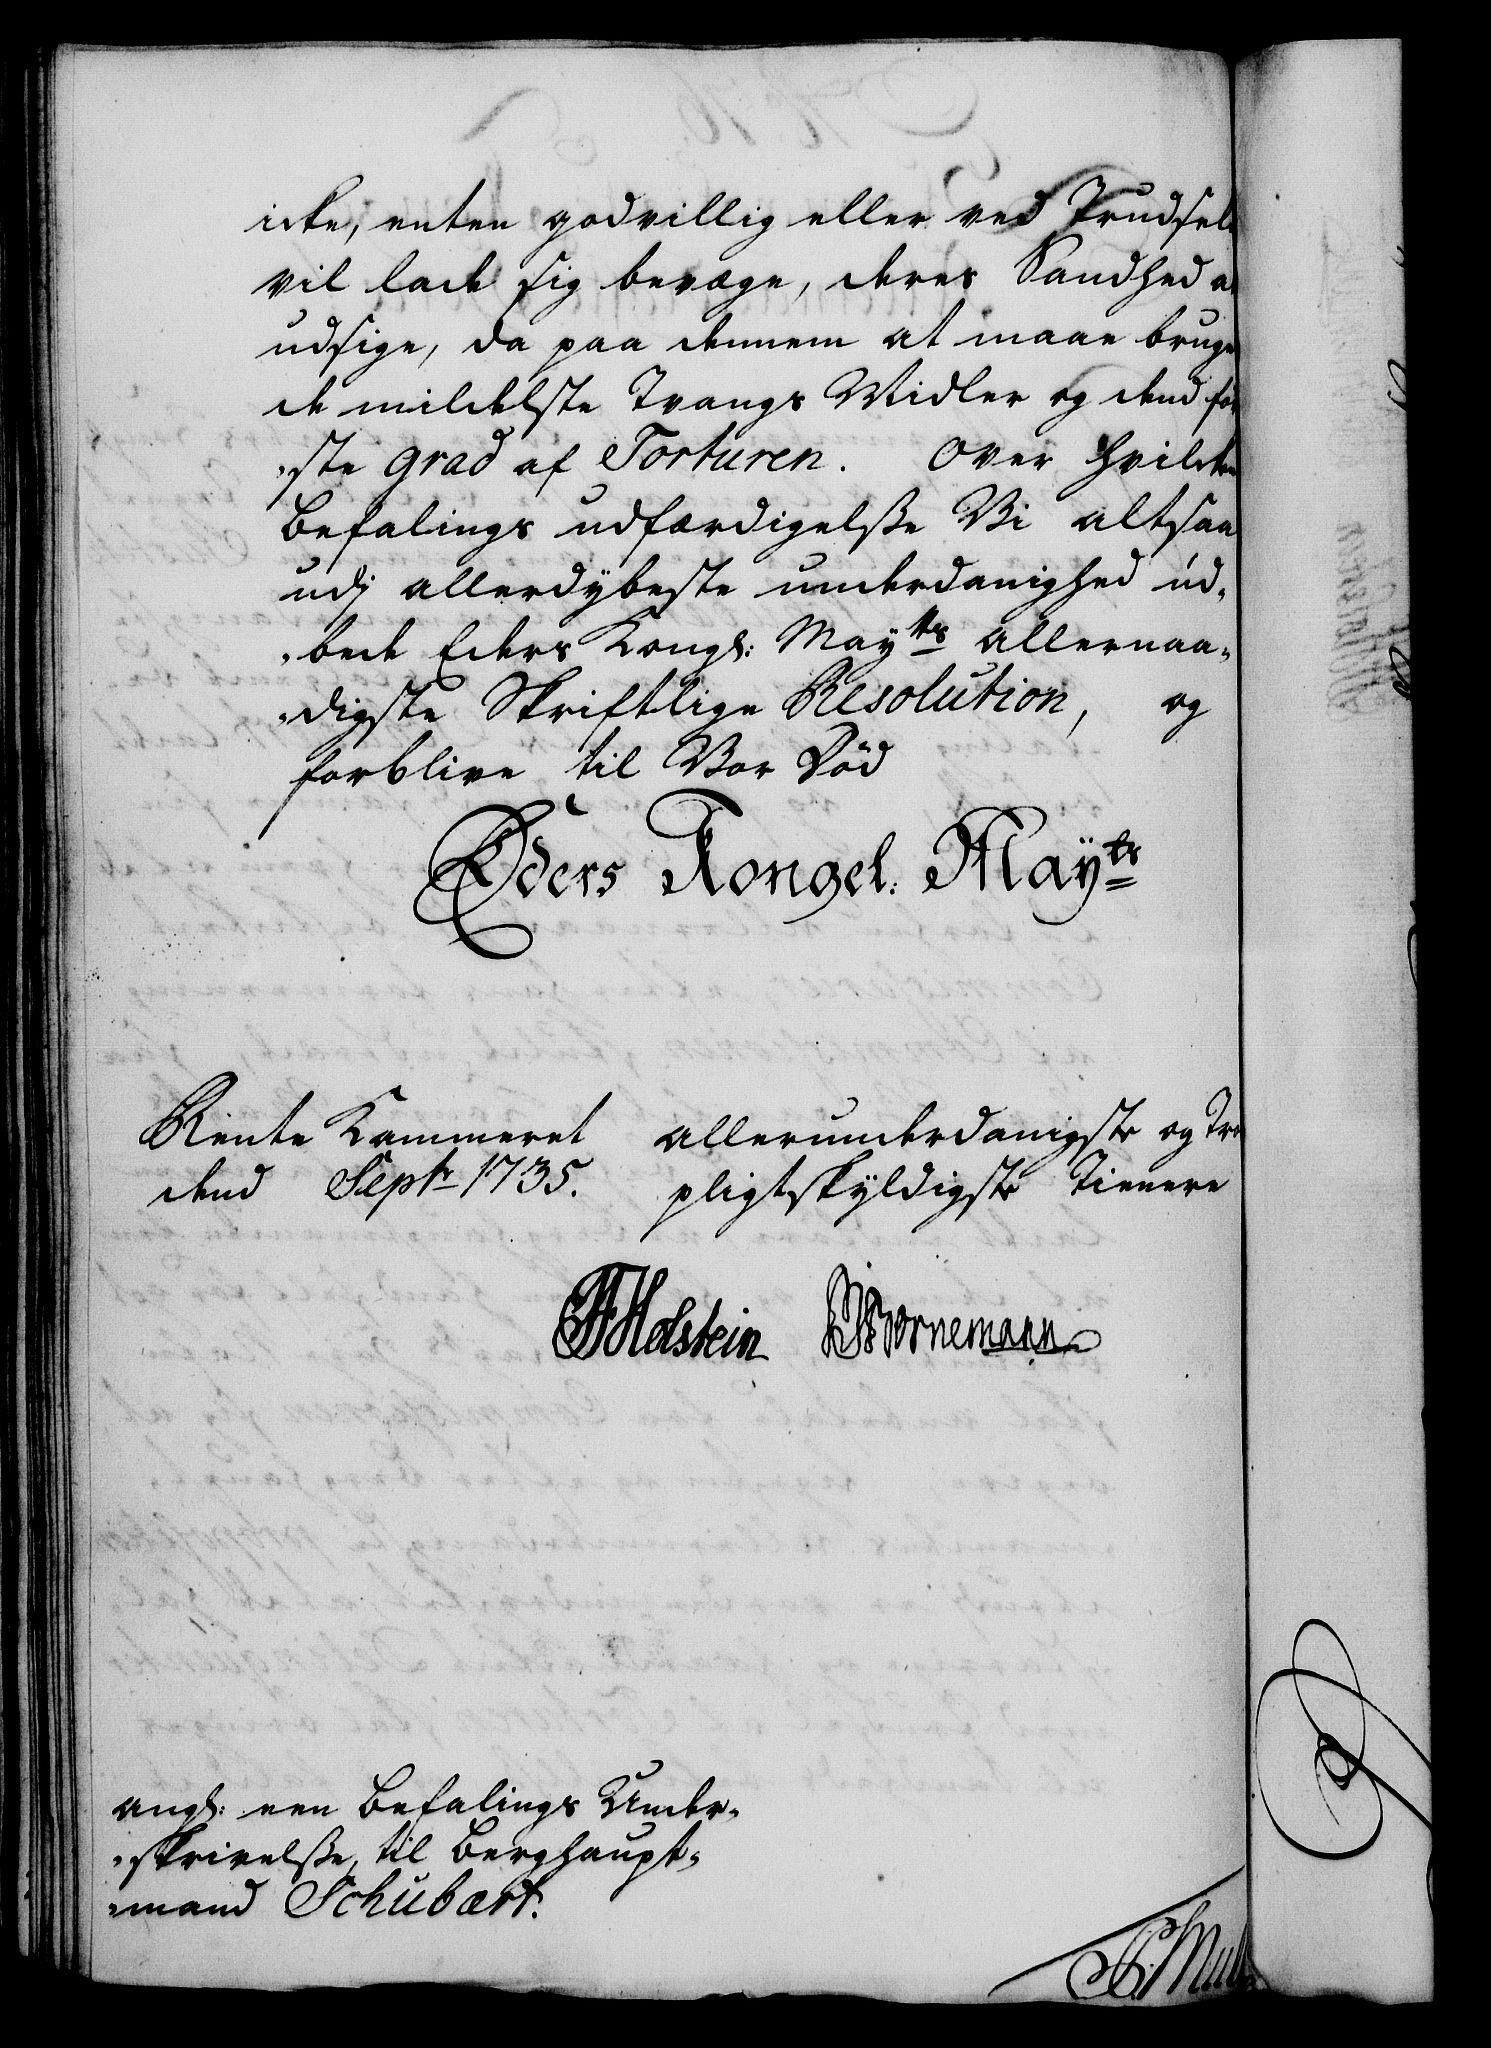 icke, enten godvillig eller ved Trudsel
vil lade sig bevæge, deres Sandhed at
udsige, da paa dennem at maae bruge
de mildelste Tvangs Midler og dend før
„ste grad af Torturen. Over hvilcken
Befalings udfærdigelsße Vi altsaa
udj allerdybeste underdanighed ud„
„bede Eders Kongl: Mayts allernaa„
„digste Skriftlige Resolution, og
forblive til Vor Død
Eders Kongel: Mayts
Rente Kammeret
dend Septr 1735.
allerunderdanigste og Tro
pligtskyldigste Tienere
Holstein Bornemann
angl: een Befalings Under„
„skrivelße, til Berghaupt„
„mand Schubært.